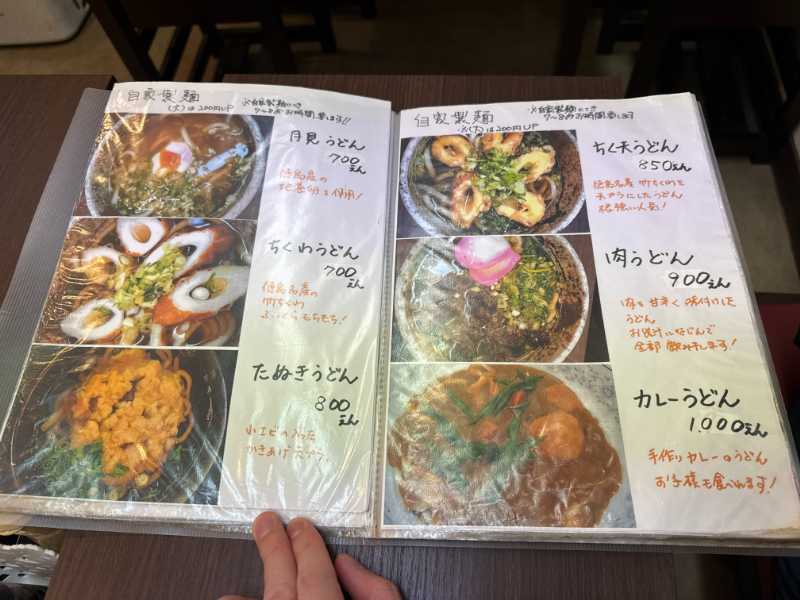 自家製麺
(大)は200円UP
※自家製麺につき
7〜8分お時間要します!!
月見うどん
700
えん
徳島産の
地養卵を使用!
ちくわうどん
700
えん
徳島名産の
竹ちくわ
ふっくらもちもち!
たぬきうどん
800
えん
小エビの入った
かきあげ天プラ。
自家製麺
※(大)は200円UP
※自家製麺につき
7〜8分お時間要します
ちく天うどん
850えん
徳島名産 竹ちくわを
天プラにしたうどん
根強い人気!
肉うどん
900えん
肉を甘辛く味付けした
うどん
お段汁になじんで
全部飲み干します!
カレーうどん
1,000えん
手作りカレーのうどん
お子様も食べれます!